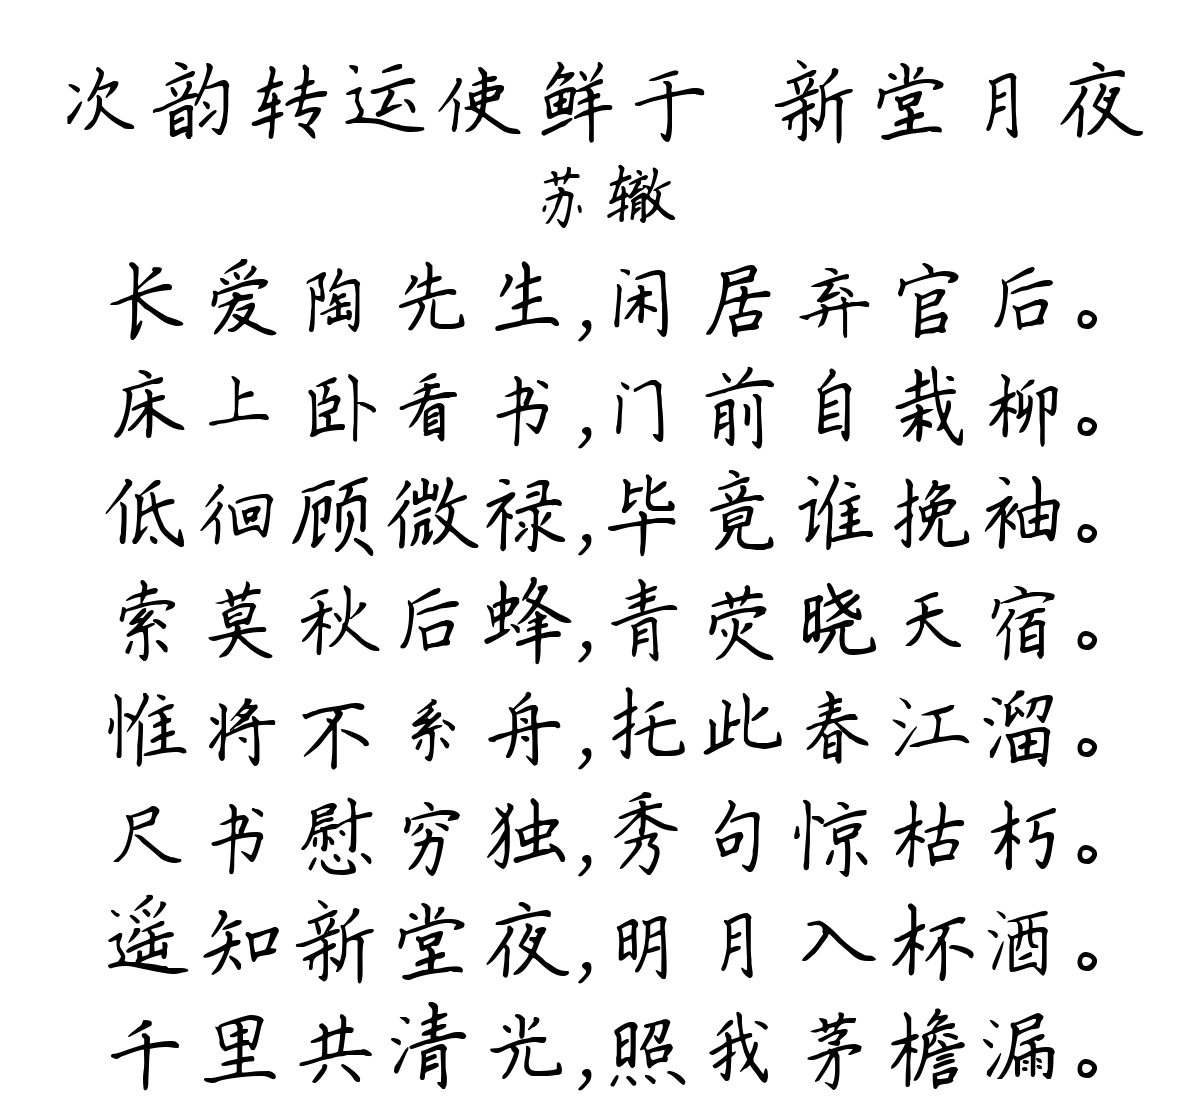 次韵转运使鲜于 新堂月夜
苏辙
长爱陶先生,闲居弃官后。
床上卧看书,门前自栽柳。
低徊顾微禄,毕竟谁挽袖。
索莫秋后蜂,青荧晓天宿。
惟将不系舟,托此春江溜。
尺书慰穷独,秀句惊枯朽。
遥知新堂夜,明月入杯酒。
千里共清光,照我茅檐漏。